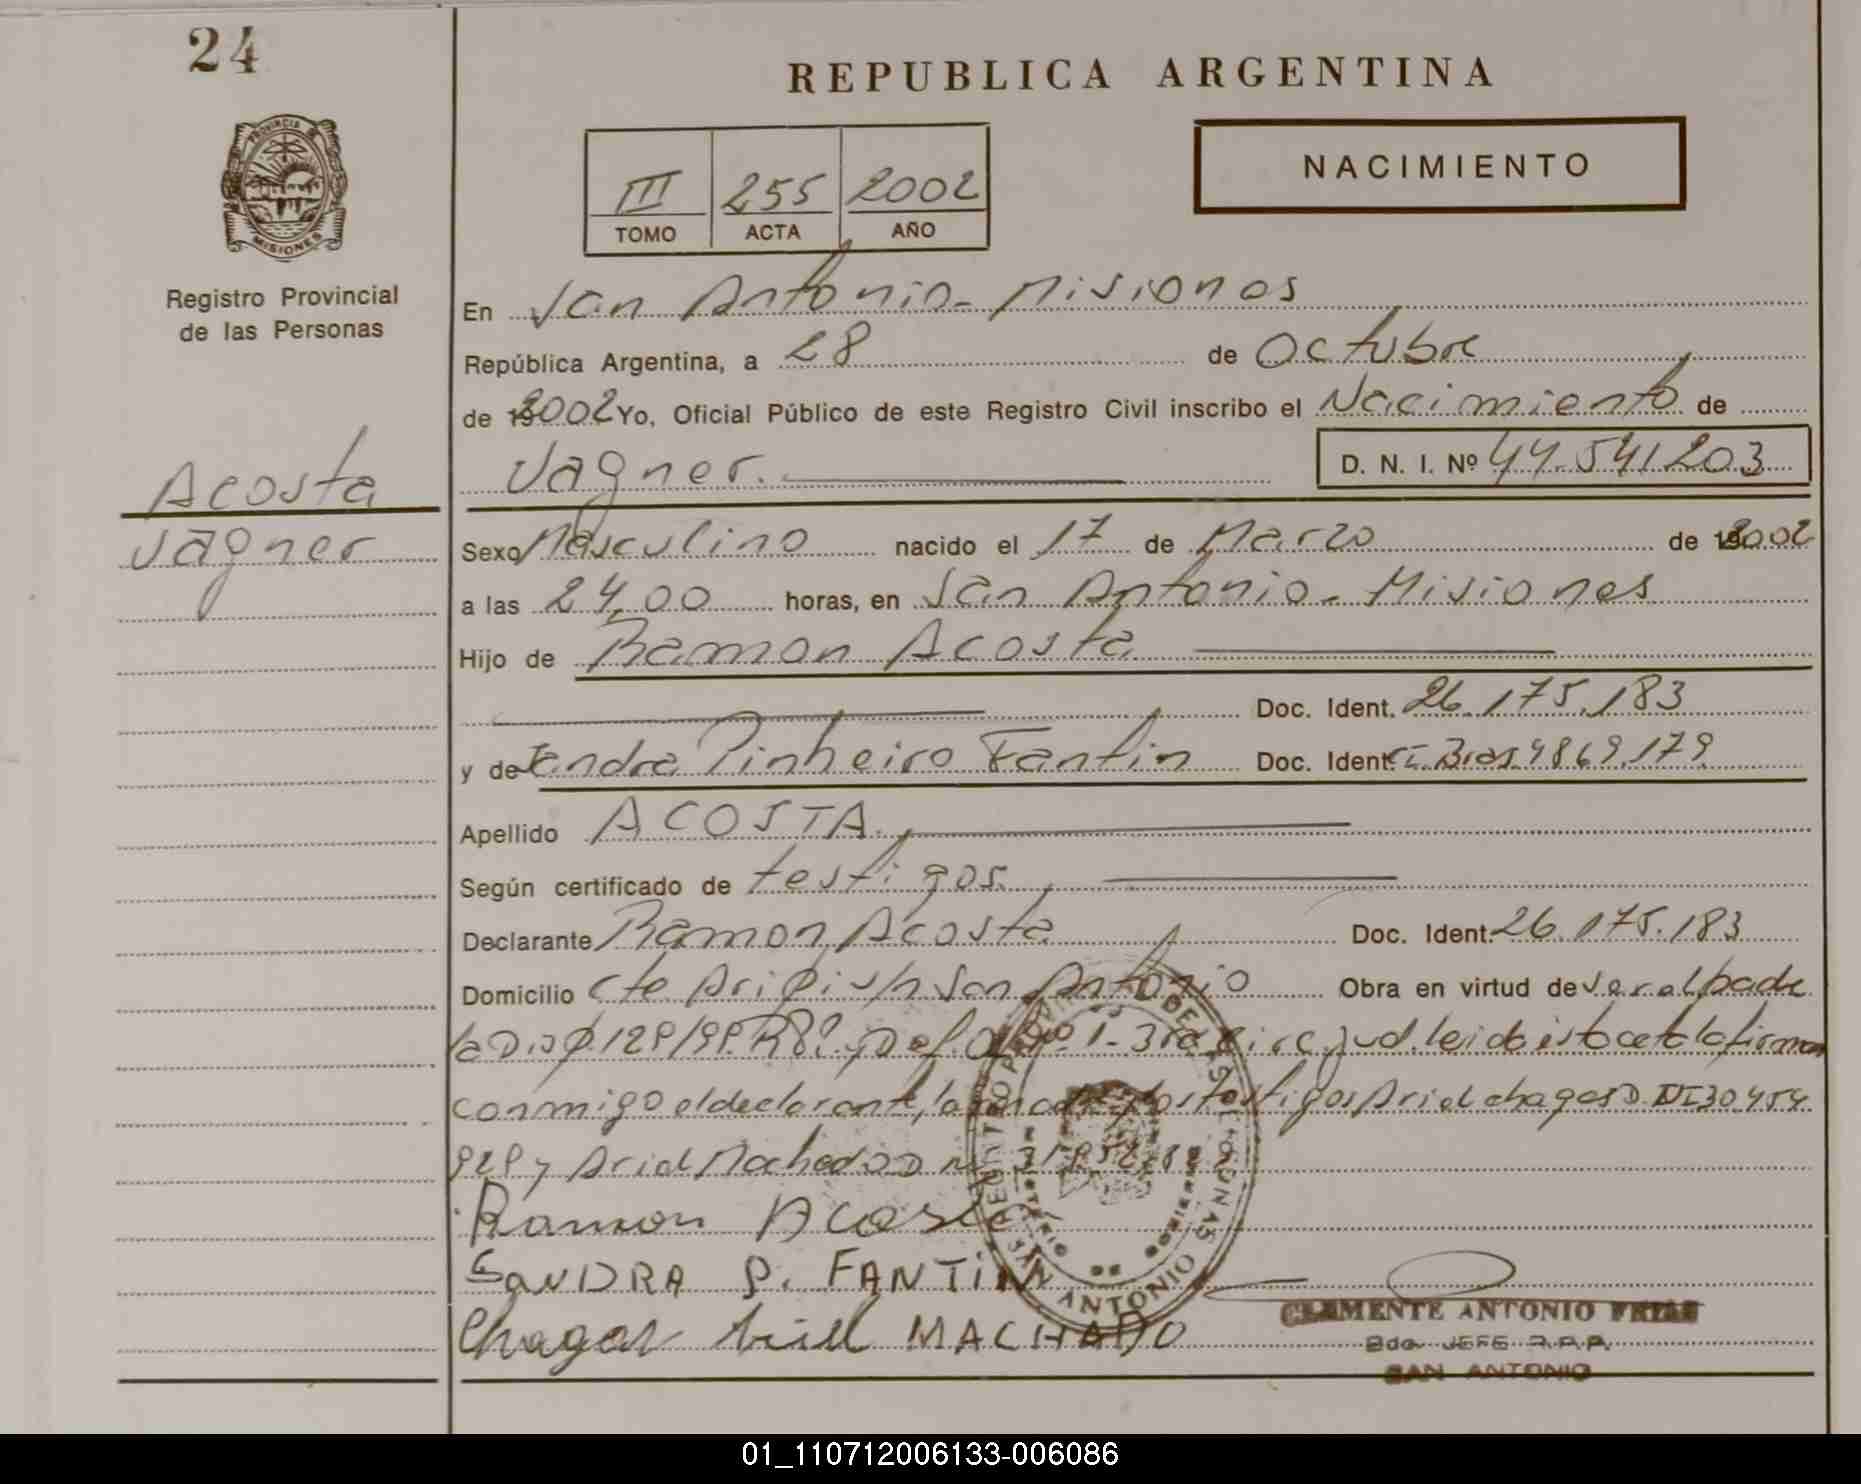 24
REPUBLICA ARGENTINA
PROVINCIA DE
MISIONES
Registro Provincial
de las Personas
III 255 2002
TOMO ACTA AÑO
NACIMIENTO
En San Antonio - Misiones
República Argentina, a 28 de Octubre
de 2002 Yo, Oficial Público de este Registro Civil inscribo el Nacimiento de
Vagner. D. N. I. Nº 44.541203
Acosta
Vagner
Sexo Masculino nacido el 17 de Marzo de 2002
a las 24,00 horas, en San Antonio - Misiones
Hijo de Ramon Acosta
Doc. Ident. 26.175.183
y de Sandra Pinheiro Fantin Doc. Ident. C.I. Bras 4869.179
Apellido ACOSTA.
Según certificado de testigos.
Declarante Ramon Acosta Doc. Ident. 26.175.183
Domicilio Cte Aripi s/n San Antonio Obra en virtud de ser el padre
1-3ra Circ. Jud. leida esta acta la firman
conmigo el declarante, la madre y los testigos Ariel chagas D.NI 30454
y Ariel Machado D
Ramon Acosta
SANDRA P. FANTIN
Chagas Ariel MACHADO
SAN ANTONIO
CLEMENTE ANTONIO FRIAS
JEFE R.P.P.
SAN ANTONIO
01_110712006133-006086